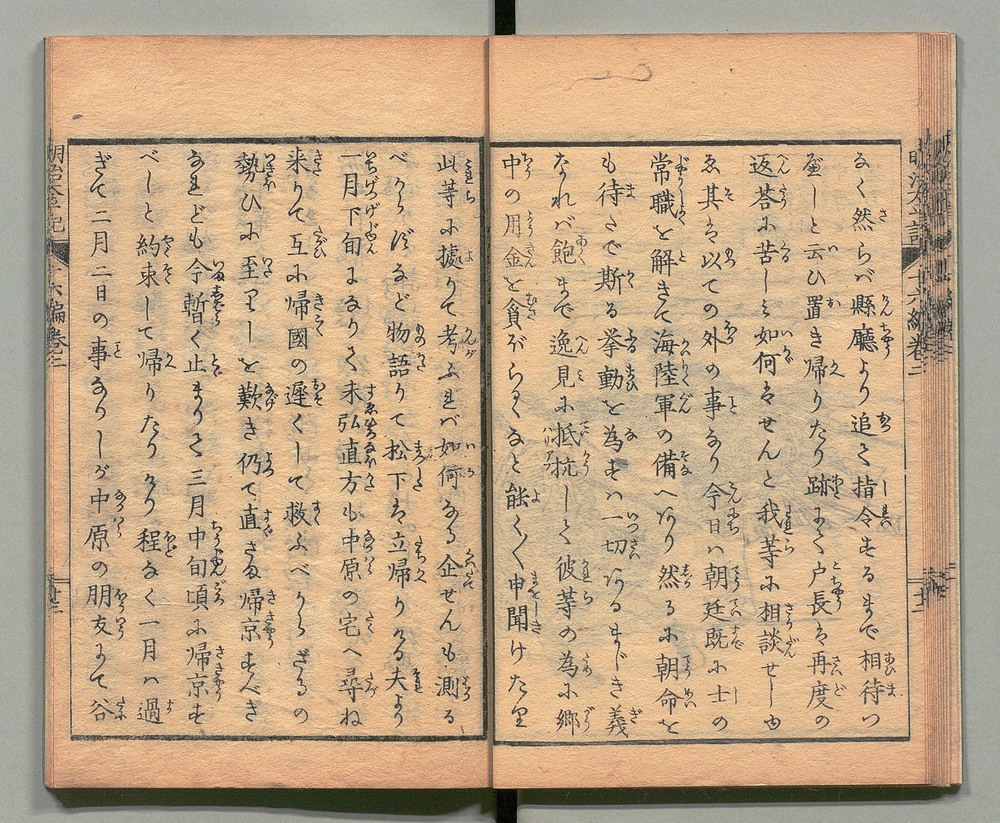 なく然らバ縣廳より追て指令するまで相待つ
べしと云ひ置き帰りたり跡にて戸長ハ再度の
返荅に苦しミ如何ハせんと我等に相談せしゆ
ゑ其ハ以ての外の事なり今日ハ朝廷既に士の
常職を解きて海陸軍の備へあり然るに朝命を
も待たで斯る挙動を為すハ一切あるまじき義
なれバ飽まで逸見に抵抗して彼等の為に郷
中の用金を貪ぼらるゝなと能く〱申聞けたり
此等に據りて考ふれバ如何なる企せんも測る
べからずなど物語りて松下ハ立帰りける夫より
一月下旬になりて末弘直方も中原の宅へ尋ね
来りて互に帰國の遅くして救ふべからざるの
勢ひに至りしを歎き仍て直さま帰京すべき
なれども今暫く止まりて三月中旬頃に帰京す
べしと約束して帰りたりけり程なく一月ハ過
ぎて二月二日の事なりしが中原の朋友にて谷
十六編巻二
廿三